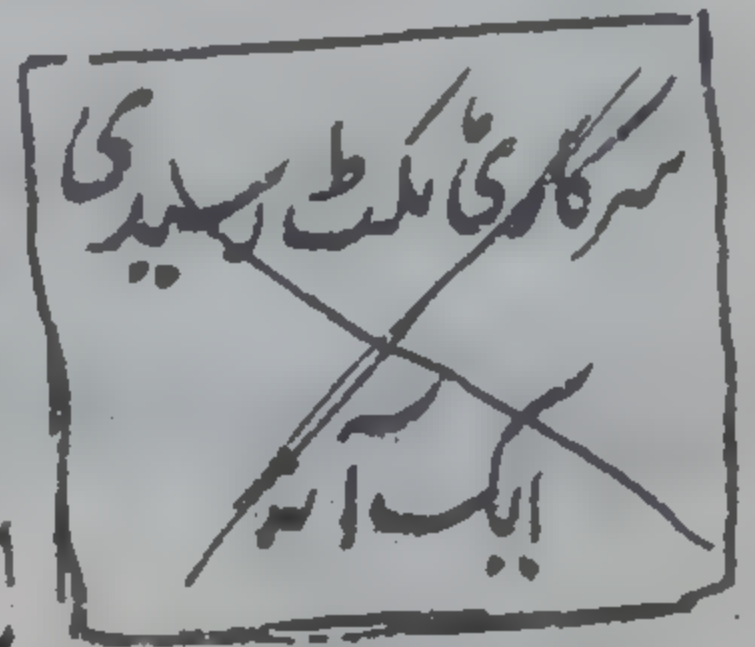 سرکاری ٹکٹ رسیدی
ایک آنہ